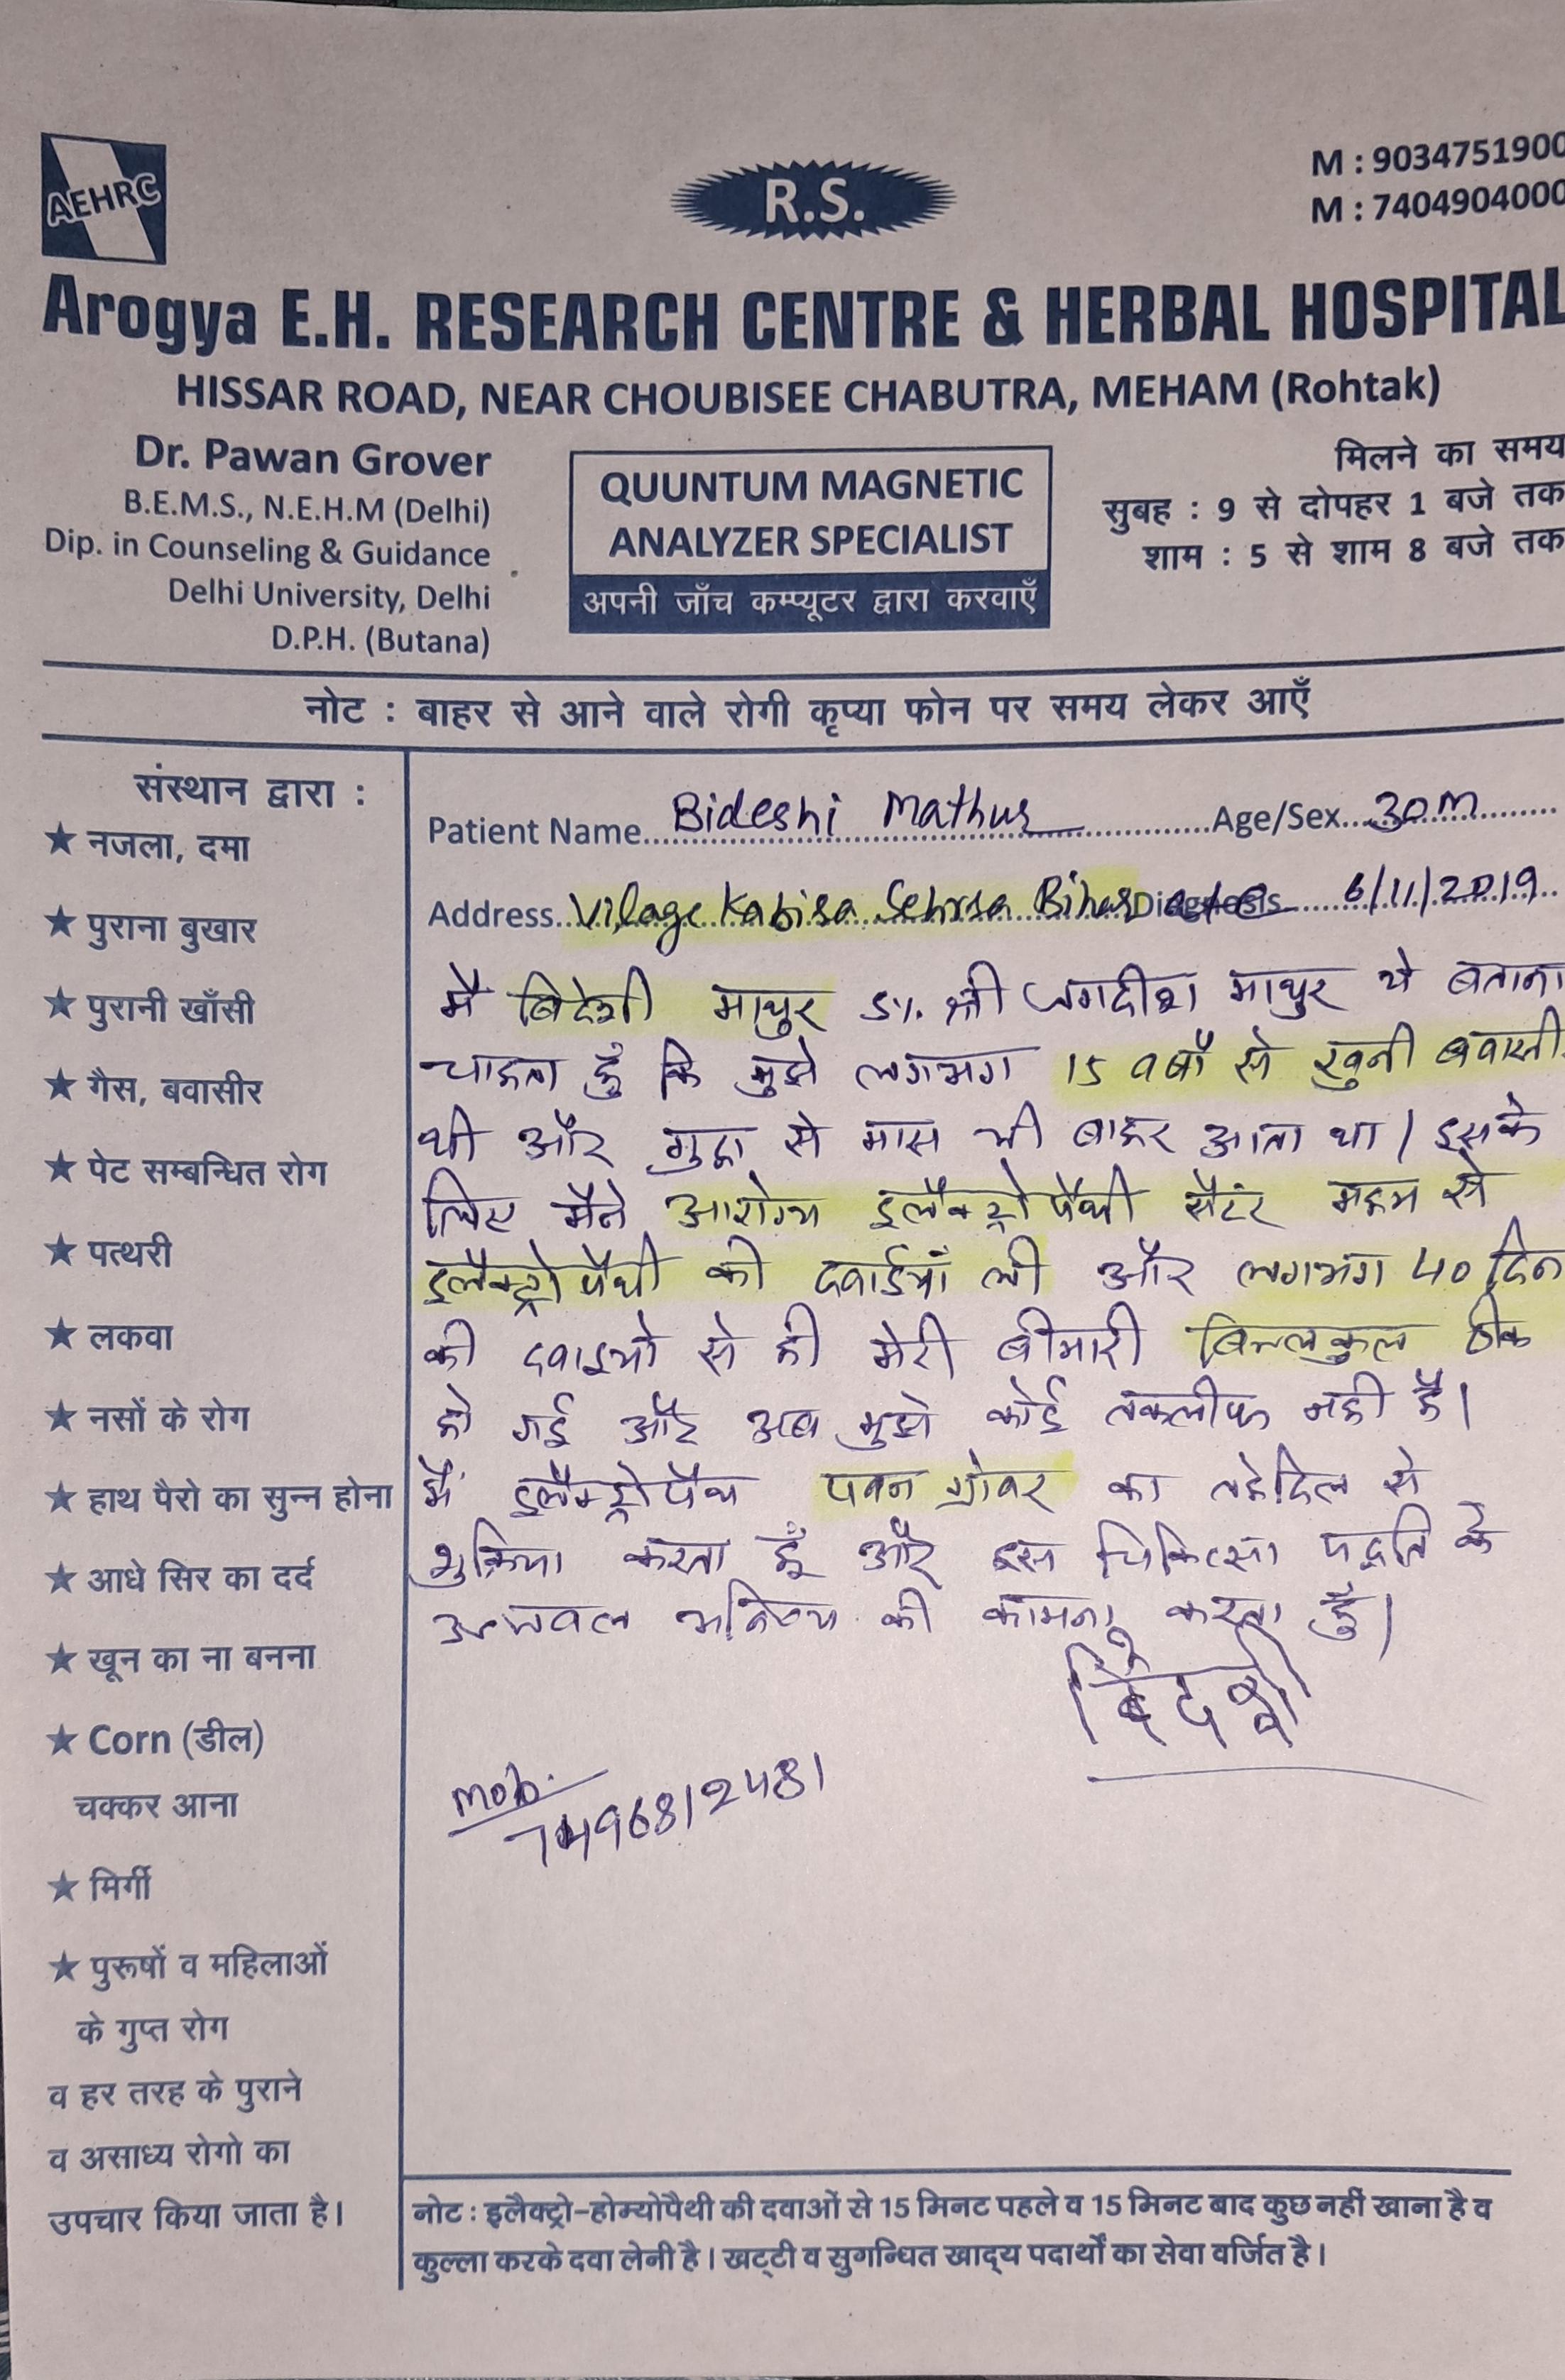 AEHRC
R.S.
M : 9034751900
M : 7404904000
Arogya E.H. RESEARCH CENTRE & HERBAL HOSPITAL
HISSAR ROAD, NEAR CHOUBISEE CHABUTRA, MEHAM (Rohtak)
Dr. Pawan Grover
B.E.M.S., N.E.H.M (Delhi)
Dip. in Counseling & Guidance
Delhi University, Delhi
D.P.H. (Butana)
QUUNTUM MAGNETIC
ANALYZER SPECIALIST
अपनी जाँच कम्प्यूटर द्वारा करवाएँ
मिलने का समय
सुबह : 9 से दोपहर 1 बजे तक
शाम : 5 से शाम 8 बजे तक
नोट : बाहर से आने वाले रोगी कृप्या फोन पर समय लेकर आएँ
संस्थान द्वारा :
★ नजला, दमा
★ पुराना बुखार
★ पुरानी खाँसी
★ गैस, बवासीर
★ पेट सम्बन्धित रोग
★ पत्थरी
★ लकवा
★ नसों के रोग
★ हाथ पैरो का सुन्न होना
★ आधे सिर का दर्द
★ खून का ना बनना
★ Corn (डील)
चक्कर आना
★ मिर्गी
★ पुरूषों व महिलाओं
के गुप्त रोग
व हर तरह के पुराने
व असाध्य रोगो का
उपचार किया जाता है।
Patient Name Bideshi Mathur Age/Sex 30 m
Address Vilage Kabira Sehrsa Bihar Diagnosis 6/11/2019
मै बिदेशी माथुर S/o श्री जगदीश माथुर ये बताना
चाहता हुँ कि मुझे लगभग 15 वर्षो से खुनी बवासी
थी और गुदा से मास भी बाहर आता था। इसके
लिए मैने आरोग्य इलैक्ट्रोपैथी सैटंर महम से
इलैक्ट्रोपैथी की दवाईयाँ ली और लगभग 40 दिन
की दवाइयो से ही मेरी बीमारी बिल्लकुल ठीक
हो गई और अब मुझे कोई तकलीफ नही है।
मैं इलैक्ट्रोपैथ पवन ग्रोवर का तहेदिल से
शुक्रिया करता हूँ और इस चिकित्सा पद्वति के
उज्जवल भविष्य की कामना करता हुँ।
बिदेशी
mob.
7496812481
नोट : इलैक्ट्रो-होम्योपैथी की दवाओं से 15 मिनट पहले व 15 मिनट बाद कुछ नहीं खाना है व
कुल्ला करके दवा लेनी है। खट्टी व सुगन्धित खाद्य पदार्थों का सेवा वर्जित है।